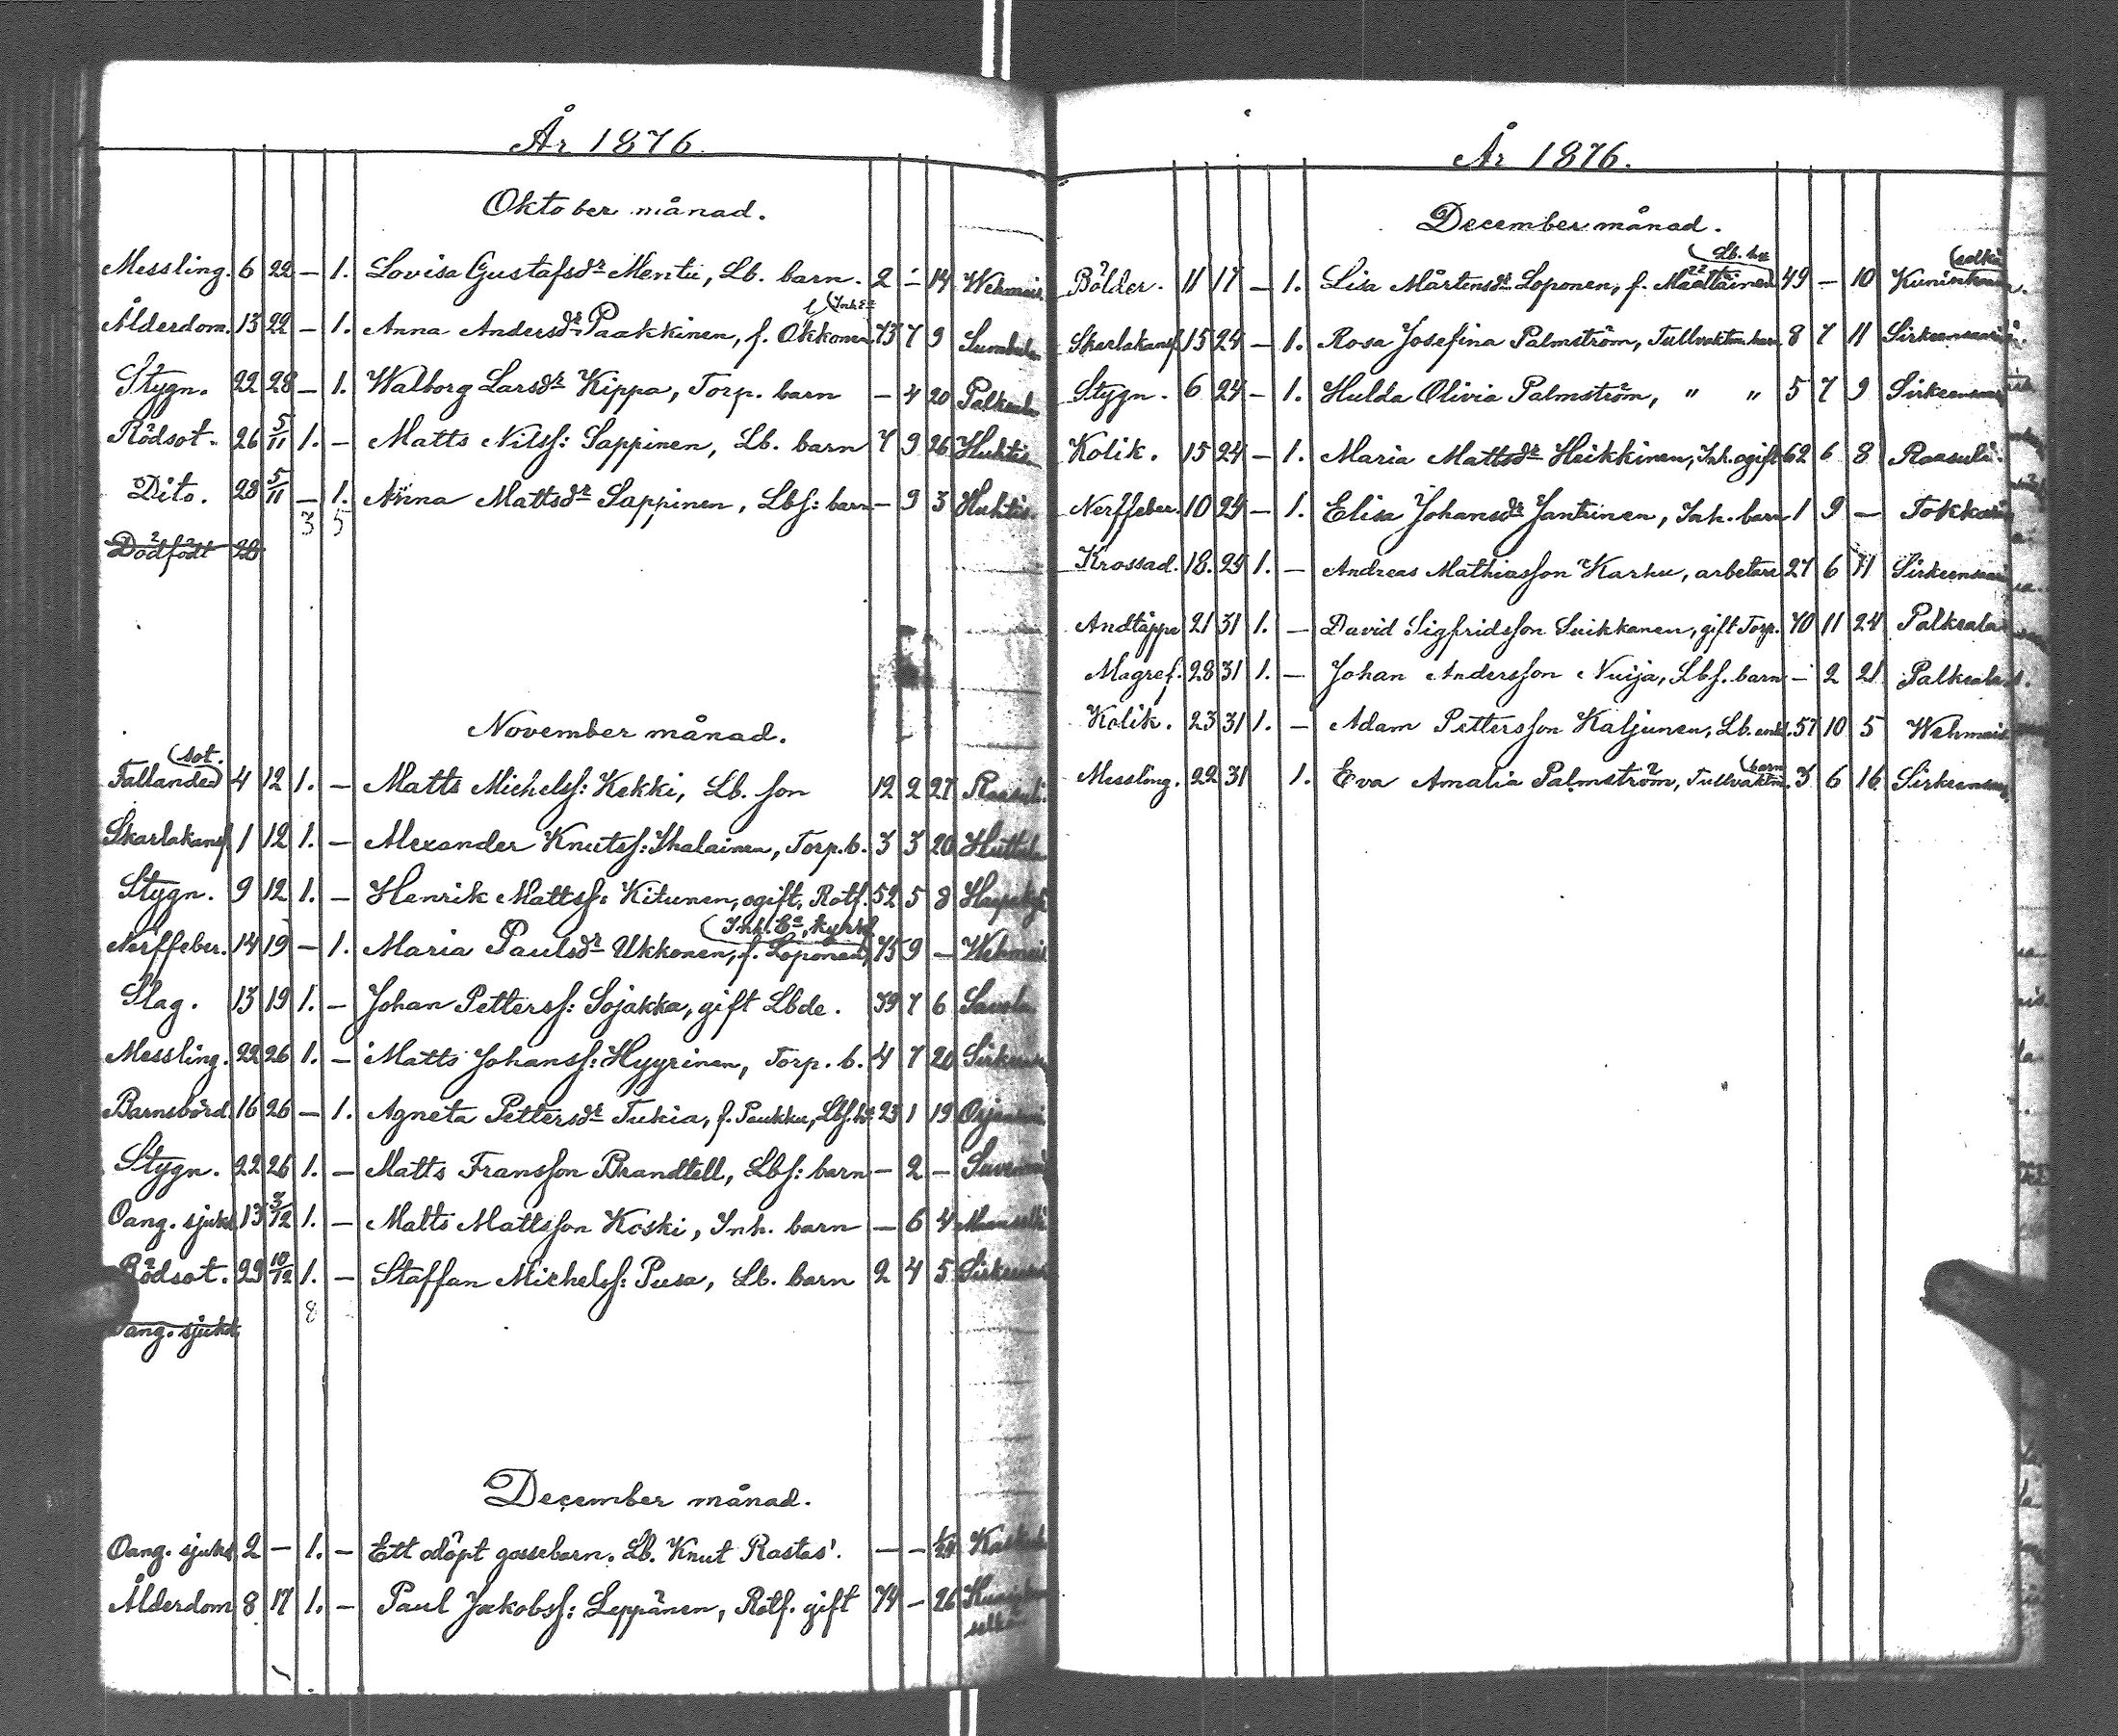 År 1876.
Oktober månad.
Messling. 6 22 — 1. Lovisa Gustafsdr Mentu, Lb. barn. 2 — 14 Wehmais
(Inh. Ea
Ålderdom. 13 22 — 1. Anna Andersdr Paakkinen, f. Okkonen 73 7 9 Sumbula
Stygn. 22 28 — 1. Walborg Larsdr Kippa, Torp. barn — 4 20 Palkeala
Rödsot. 26 5/11 1. — Matts Nilsf: Sappinen, Lb. barn 7 9 26 Huhtis
Dito. 28 5/11 — 1. Anna Mattsdr Sappinen, Lbf: barn — 9 3 Huhtis.
3 5
Dödfödt 28
November månad.
(sot.
Fallande 4 12 1. — Matts Michelsf: Kekki, Lb. son 12 2 27 Raasuli.
Skarlakansf 1 12 1. — Alexander Knutsf: Ihalainen, Torp. b. 3 3 20
Stygn. 9 12 1. — Henrik Mattsf: Kitunen, ogift, Rotf. 52 5 8
(Inh. Ea, kyrkf
Nerffeber. 14 19 — 1. Maria Paulsdr Ukkonen, f. Loponen, 75 9 — Wehmais
Slag. 13 19 1. — Johan Pettersf: Sojakka, gift Lbde. 39 7 6
Messling. 22 26 1. — Matts Johansf: Hyyrinen, Torp. b. 4 7 20
Barnsbörd. 16 26 — 1. Agneta Pettersdr Tukia, f. Paukku, Lbf. hu 23 1 19
Stygn. 22 26 1. — Matts Fransson Brandtell, Lbf: barn — 2 —
Oang. sjukd. 13 3/12 1. — Matts Mattsson Koski, Inh. barn — 6 4
Rödsot. 29 10/12 1. — Staffan Michelsf: Pusa, Lb. barn 2 4 5
8
Oang. sjukd.
December månad.
Oang. sjukd. 2 — 1. — Ett odöpt gossebarn. Lb. Knut Rastas'. — —
Ålderdom 8 17 1. — Paul Jakobsf: Leppänen, Rotf. gift 74 — 26
År 1876.
December månad.
(Lb. hu (selkä
Bölder. 11 17 — 1. Lisa Mårtensdr Loponen, f. Määttäinen 49 — 10
Skarlakansf 15 24 — 1. Rosa Josefina Palmström, Tullvaktm. barn 8 7 11 Sirkeensaari
Stygn. 6 24 — 1. Hulda Olivia Palmström, " " 5 7 9 Sirkeensaari
Kolik. 15 24 — 1. Maria Mattsdr Heikkinen, Inh. ogift 62 6 8 Raasuli.
Nerffeber. 10 24 — 1. Elisa Johansdr Jantunen, Inh. barn 1 9 —
Krossad. 18. 24 1. — Andreas Mathiasson Karhu, arbetare 27 6 11 Sirkeensaari
Andtäppa 21 31 1. — David Sigfridsson Suikkanen, gift Torp. 70 11 24 Palkeala
Magref. 28 31 1. — Johan Andersson Nuija, Lbf. barn — 2 21 Palkeala
Kolik. 23 31 1. — Adam Pettersson Kaljunen, Lb. enkl. 57 10 5 Wehmais
(barn
Messling. 22 31 1. Eva Amalia Palmström, Tullvaktm. 3 6 16 Sirkeensaari